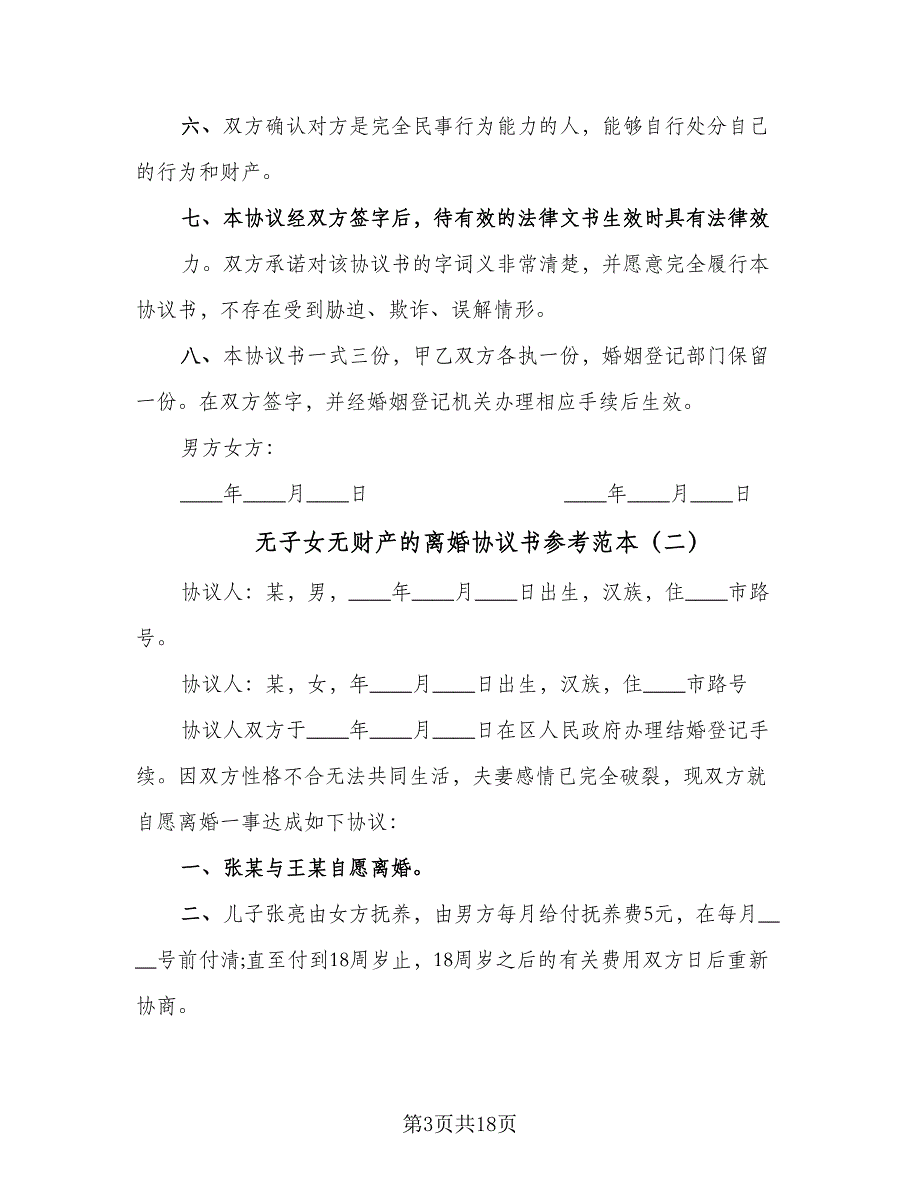 六、双方确认对方是完全民事行为能力的人，能够自行处分自己
的行为和财产。
七、本协议经双方签字后，待有效的法律文书生效时具有法律效
力。双方承诺对该协议书的字词义非常清楚，并愿意完全履行本
协议书，不存在受到胁迫、欺诈、误解情形。
八、本协议书一式三份，甲乙双方各执一份，婚姻登记部门保留
一份。在双方签字，并经婚姻登记机关办理相应手续后生效。
男方女方：
____年____月____日 ____年____月____日
无子女无财产的离婚协议书参考范本（二）
协议人：某，男，____年____月____日出生，汉族，住____市路
号。
协议人：某，女，年____月____日出生，汉族，住____市路号
协议人双方于____年____月____日在区人民政府办理结婚登记手
续。因双方性格不合无法共同生活，夫妻感情已完全破裂，现双方就
自愿离婚一事达成如下协议：
一、张某与王某自愿离婚。
二、儿子张亮由女方抚养，由男方每月给付抚养费5元，在每月__
__号前付清;直至付到18周岁止，18周岁之后的有关费用双方日后重新
协商。
第3页共18页